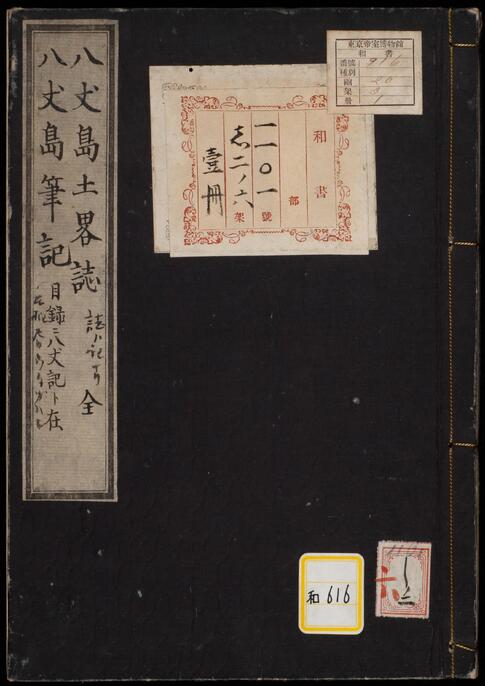 八丈島土畧誌 全
誌ハ記可
八丈島筆記
目録ニ八丈記ト在
和書
部
一一〇一號
志二ノ六架
壹冊
東京帝室博物館
和書
番號 916
種別
函 20
架 9
冊 1
和616
しニ
六